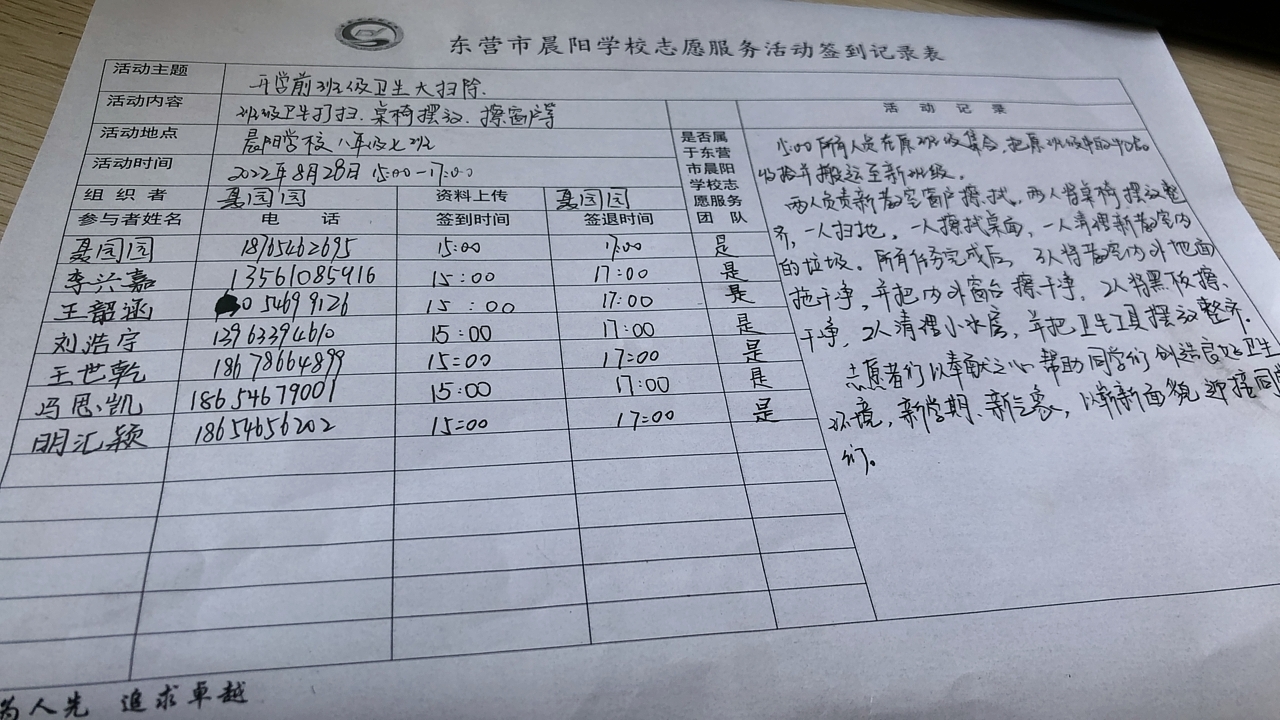 东营市晨阳学校志愿服务活动签到记录表
活动主题 开学前班级卫生大扫除.
活动内容 班级卫生打扫.桌椅摆放.擦窗户等
活动地点 晨阳学校八年级七班
活动时间 2022年8月28日 15:00-17:00
组织者 聂园园 资料上传 聂园园
是否属于东营市晨阳学校志愿服务团队
参与者姓名 电话 签到时间 签退时间
聂园园 18765462695 15:00 17:00 是
李兴嘉 13561085916 15:00 17:00 是
王韶涵 054699126 15:00 17:00 是
刘浩宇 13963394610 15:00 17:00 是
王世乾 18678664899 15:00 17:00 是
冯思凯 18654679001 15:00 17:00 是
明汇颖 18654656202 15:00 17:00 是
活动记录
15:00所有人员在原班级集合,把原班级
收拾并搬运至新班级.
两人负责新教室窗户擦拭.两人将桌椅摆放整
齐,一人扫地,一人擦拭桌面,一人清理新教室内
的垃圾.所有任务完成后,3人将教室内外地面
拖干净,并把内外窗台擦干净.2人将黑板擦
干净,2人清理小水房,并把卫生工具摆放整齐.
志愿者们以奉献之心帮助同学们创造良好卫生
环境,新学期、新气象,以崭新面貌迎接同学
们。
为人先 追求卓越